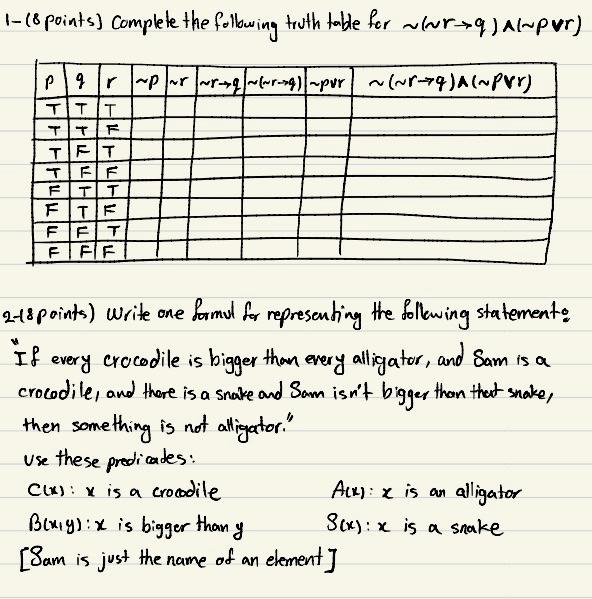 1-(8 points) Complete the following truth table for ~(~r→q)∧(~p∨r)
p q r ~p ~r ~r→q ~(~r→q) ~p∨r ~(~r→q)∧(~p∨r)
T T T
T T F
T F T
T F F
F T T
F T F
F F T
F F F
2-(8 points) Write one formul for representing the following statement:
"If every crocodile is bigger than every alligator, and Sam is a
crocodile, and there is a snake and Sam isn't bigger than that snake,
then something is not alligator."
Use these predicades:
C(x): x is a crocodile A(x): x is an alligator
B(x,y): x is bigger than y S(x): x is a snake
[Sam is just the name of an element]